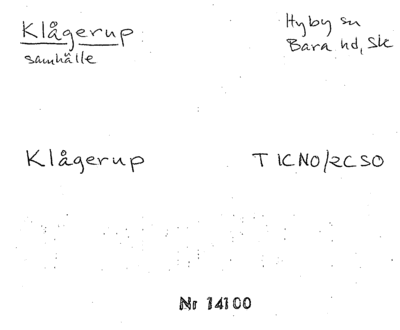 Klågerup
samhälle
Hyby sn
Bara hd, Sk
Klågerup
T 1CNO/2CSO
Nr 14100